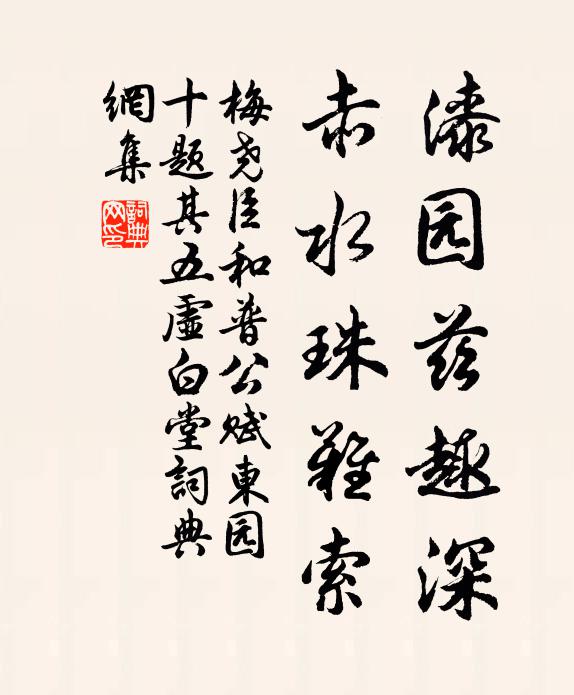 漆园兹趣深
赤水珠难索
梅尧臣和普公赋東园
十题其五虚白堂詞典
網集
詞典
网印